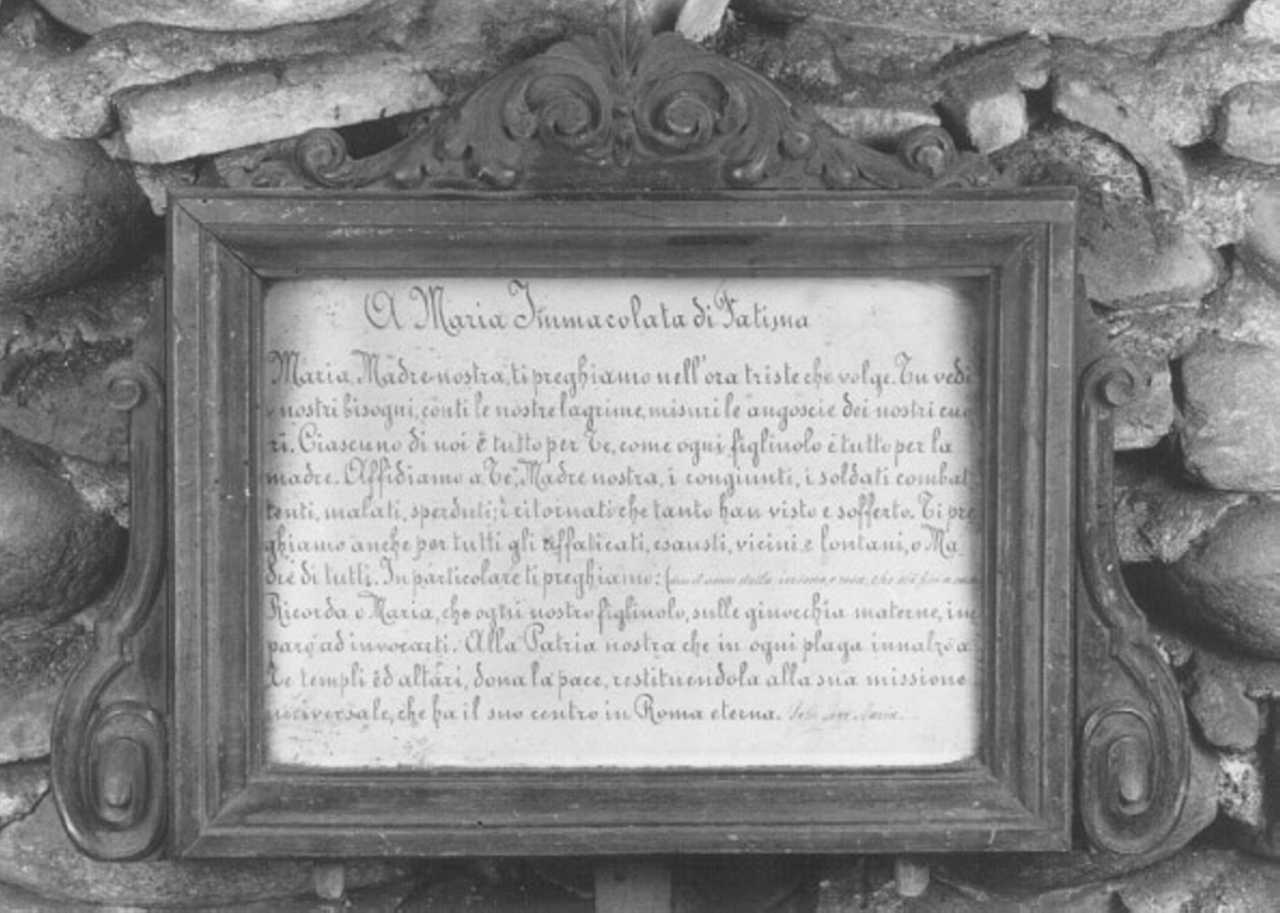 A Maria Immacolata di Fatima
Maria, Madre nostra, ti preghiamo nell'ora triste che volge. Tu vedi
i nostri bisogni, conti le nostre lagrime, misuri le angoscie dei nostri cuo
ri. Ciascuno di noi è tutto per Te, come ogni figliuolo è tutto per la
madre. Affidiamo a Te, Madre nostra, i congiunti, i soldati combat
tenti, malati, sperduti; i ritornati che tanto han visto e sofferto. Ti pre
ghiamo anche per tutti gli affaticati, esausti, vicini e lontani, o Ma
dre di tutti. In particolare ti preghiamo: (
Ricorda o Maria, che ogni nostro figliuolo, sulle ginocchia materne, im
parò ad invocarti. Alla Patria nostra che in ogni plaga innalzò a
Te templi ed altari, dona la pace, restituendola alla sua missione
universale, che ha il suo centro in Roma eterna.